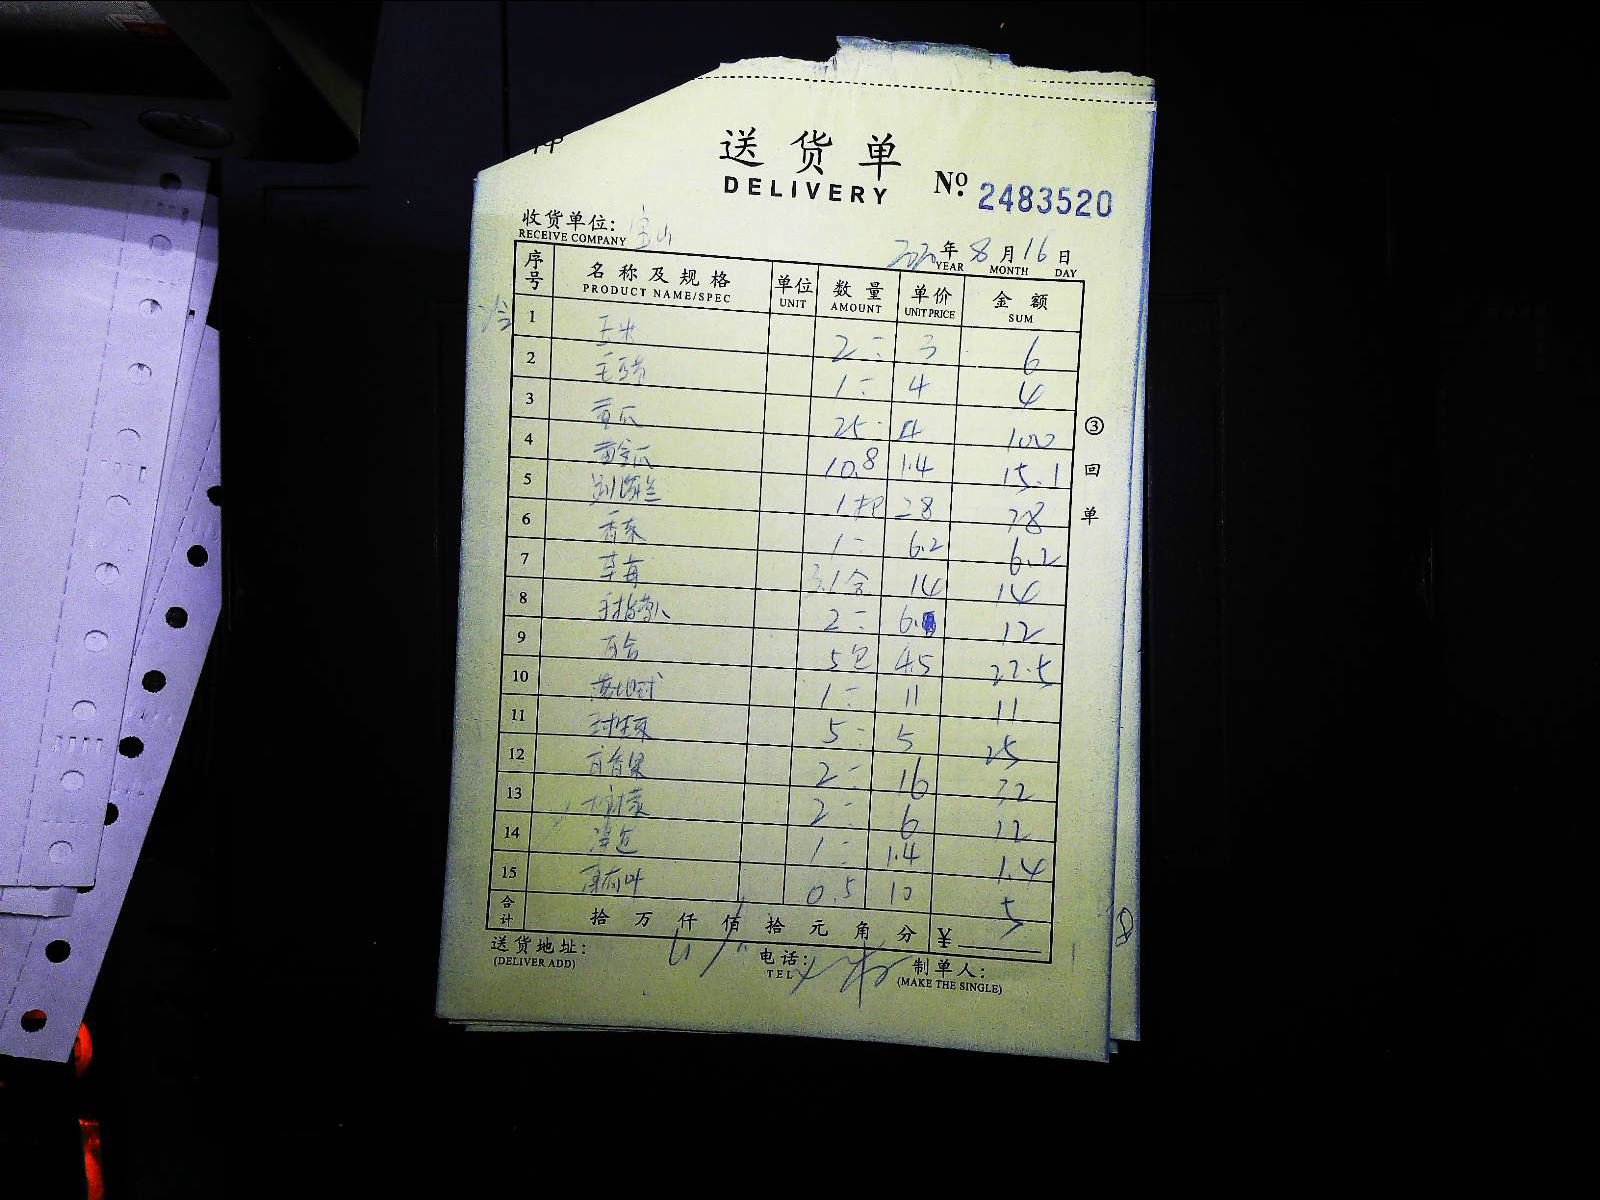 送货单
DELIVERY
No. 2483520
收货单位: 宝山
RECEIVE COMPANY
2020年 8月 16日
YEAR MONTH DAY
序号 名称及规格 单位 数量 单价 金额
PRODUCT NAME/SPEC UNIT AMOUNT UNIT PRICE SUM
1 玉米 2 3 6
2 1 4 4
3 黄瓜 25 4 100
4 黄金瓜 10.8 1.4 15.1
5 1把 28 28
6 香菜 1 6.2 6.2
7 草莓 1合 14 14
8 2 6. 12
9 百合 5包 4.5 22.5
10 1 11 11
11 5 5 25
12 百香果 2 16 32
13 柠檬 2 6 12
14 1 1.4 1.4
15 薄荷叶 0.5 10 5
合计 拾 万 仟 佰 拾 元 角 分 ¥
送货地址:
(DELIVER ADD)
电话:
TEL
制单人:
(MAKE THE SINGLE)
③回单